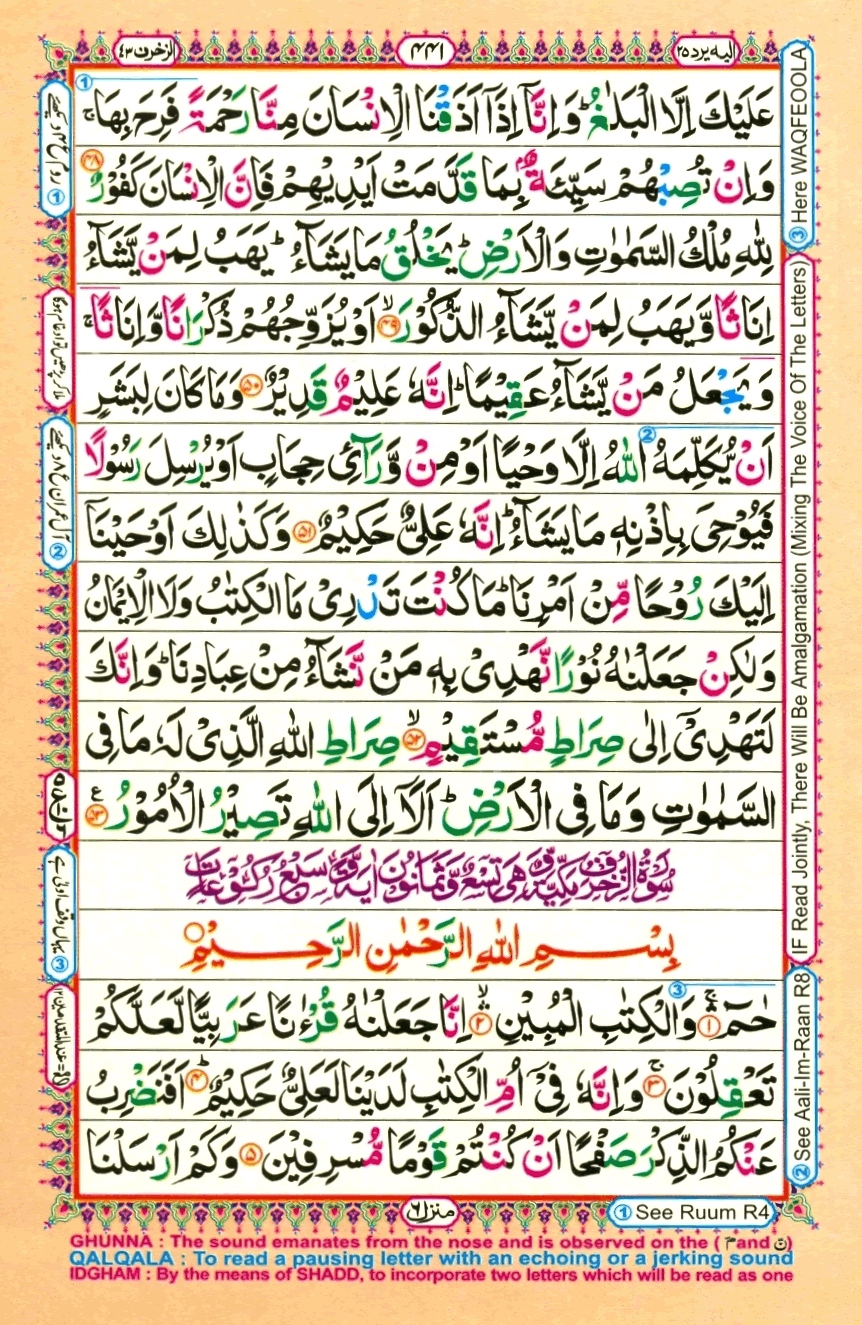 اليه يرد ٢٥
٤٤١
الزخرف ٤٣
عَلَيْكَ اِلَّا الْبَلٰغُ ؕ وَ اِنَّاۤ اِذَاۤ اَذَقْنَا الْاِنْسَانَ مِنَّا رَحْمَةً فَرِحَ بِهَا ۚ
وَ اِنْ تُصِبْهُمْ سَيِّئَةٌۢ بِمَا قَدَّمَتْ اَيْدِيْهِمْ فَاِنَّ الْاِنْسَانَ كَفُوْرٌ ﴿۴۸﴾
لِلّٰهِ مُلْكُ السَّمٰوٰتِ وَ الْاَرْضِ ؕ يَخْلُقُ مَا يَشَآءُ ؕ يَهَبُ لِمَنْ يَّشَآءُ
اِنَاثًا وَّ يَهَبُ لِمَنْ يَّشَآءُ الذُّكُوْرَ ﴿ۙ۴۹﴾ اَوْ يُزَوِّجُهُمْ ذُكْرَانًا وَّ اِنَاثًا ۚ
وَ يَجْعَلُ مَنْ يَّشَآءُ عَقِيْمًا ؕ اِنَّهٗ عَلِيْمٌ قَدِيْرٌ ﴿۵۰﴾ وَ مَا كَانَ لِبَشَرٍ
اَنْ يُّكَلِّمَهُ اللّٰهُ اِلَّا وَحْيًا اَوْ مِنْ وَّرَآئِ حِجَابٍ اَوْ يُرْسِلَ رَسُوْلًا
فَيُوْحِيَ بِاِذْنِهٖ مَا يَشَآءُ ؕ اِنَّهٗ عَلِيٌّ حَكِيْمٌ ﴿۵۱﴾ وَ كَذٰلِكَ اَوْحَيْنَاۤ
اِلَيْكَ رُوْحًا مِّنْ اَمْرِنَا ؕ مَا كُنْتَ تَدْرِيْ مَا الْكِتٰبُ وَ لَا الْاِيْمَانُ
وَ لٰكِنْ جَعَلْنٰهُ نُوْرًا نَّهْدِيْ بِهٖ مَنْ نَّشَآءُ مِنْ عِبَادِنَا ؕ وَ اِنَّكَ
لَتَهْدِيْۤ اِلٰى صِرَاطٍ مُّسْتَقِيْمٍ ﴿ۙ۵۲﴾ صِرَاطِ اللّٰهِ الَّذِيْ لَهٗ مَا فِي
السَّمٰوٰتِ وَ مَا فِي الْاَرْضِ ؕ اَلَاۤ اِلَى اللّٰهِ تَصِيْرُ الْاُمُوْرُ ﴿۵۳﴾ ع
سُوْرَةُ الزُّخْرُفِ مَكِّيَّةٌ وَّ هِيَ تِسْعٌ وَّ ثَمَانُوْنَ اٰيَةً وَّ سَبْعُ رُكُوْعَاتٍ
بِسْمِ اللّٰهِ الرَّحْمٰنِ الرَّحِيْمِ
حٰمٓ ﴿ۚ۱﴾ وَ الْكِتٰبِ الْمُبِيْنِ ﴿ۙ۲﴾ اِنَّا جَعَلْنٰهُ قُرْءٰنًا عَرَبِيًّا لَّعَلَّكُمْ
تَعْقِلُوْنَ ﴿ۚ۳﴾ وَ اِنَّهٗ فِيْۤ اُمِّ الْكِتٰبِ لَدَيْنَا لَعَلِيٌّ حَكِيْمٌ ﴿ؕ۴﴾ اَفَنَضْرِبُ
عَنْكُمُ الذِّكْرَ صَفْحًا اَنْ كُنْتُمْ قَوْمًا مُّسْرِفِيْنَ ﴿۵﴾ وَ كَمْ اَرْسَلْنَا
منزل ٦
③ Here WAQFEOOLA
IF Read Jointly, There Will Be Amalgamation (Mixing The Voice Of The Letters)
② See Aali-Im-Raan R8
① See Ruum R4
③ یہاں وقف اولیٰ ہے
GHUNNA : The sound emanates from the nose and is observed on the ( م and ن )
QALQALA : To read a pausing letter with an echoing or a jerking sound
IDGHAM : By the means of SHADD, to incorporate two letters which will be read as one